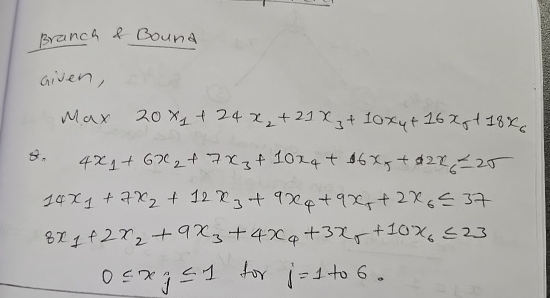 Branch & Bound
Given,
Max 20x₁ + 24x₂ + 21x₃ + 10x₄ + 16x₅ + 18x₆
8. 4x₁ + 6x₂ + 7x₃ + 10x₄ + 16x₅ + 12x₆ ≤ 25
14x₁ + 7x₂ + 12x₃ + 9x₄ + 9x₅ + 2x₆ ≤ 37
8x₁ + 2x₂ + 9x₃ + 4x₄ + 3x₅ + 10x₆ ≤ 23
0 ≤ xⱼ ≤ 1 for j = 1 to 6.